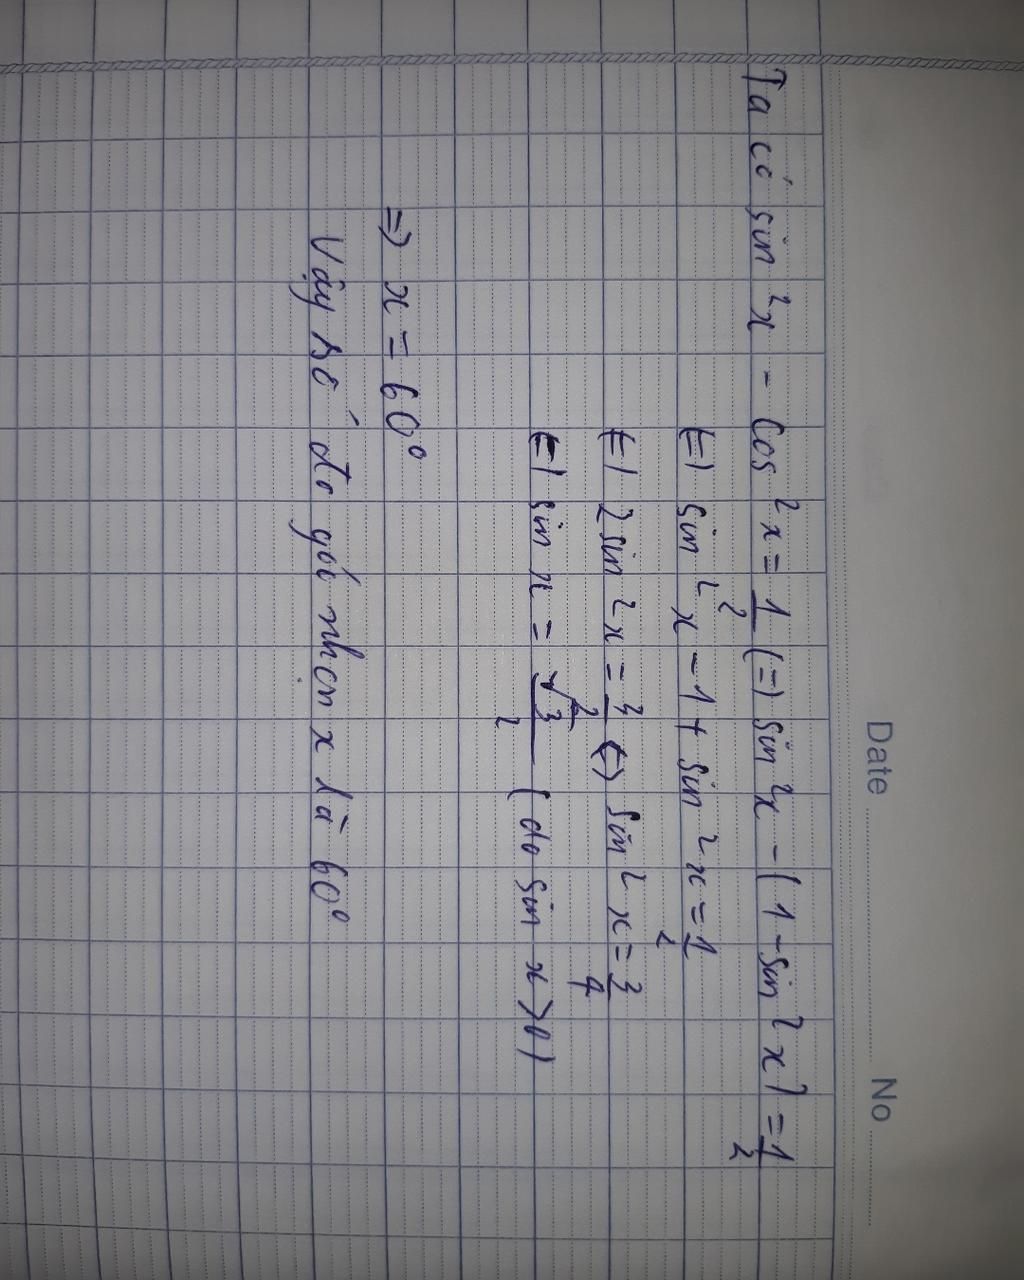 Date No
Ta có sin²x - Cos²x = 1/2 (=) sin²x - (1 - sin²x) = 1/2
(=) sin²x - 1 + sin²x = 1/2
(=) 2sin²x = 3/2 (=) sin²x = 3/4
(=) sin x = √3/2 (do sin x > 0)
=> x = 60°
Vậy số đo góc nhọn x là 60°